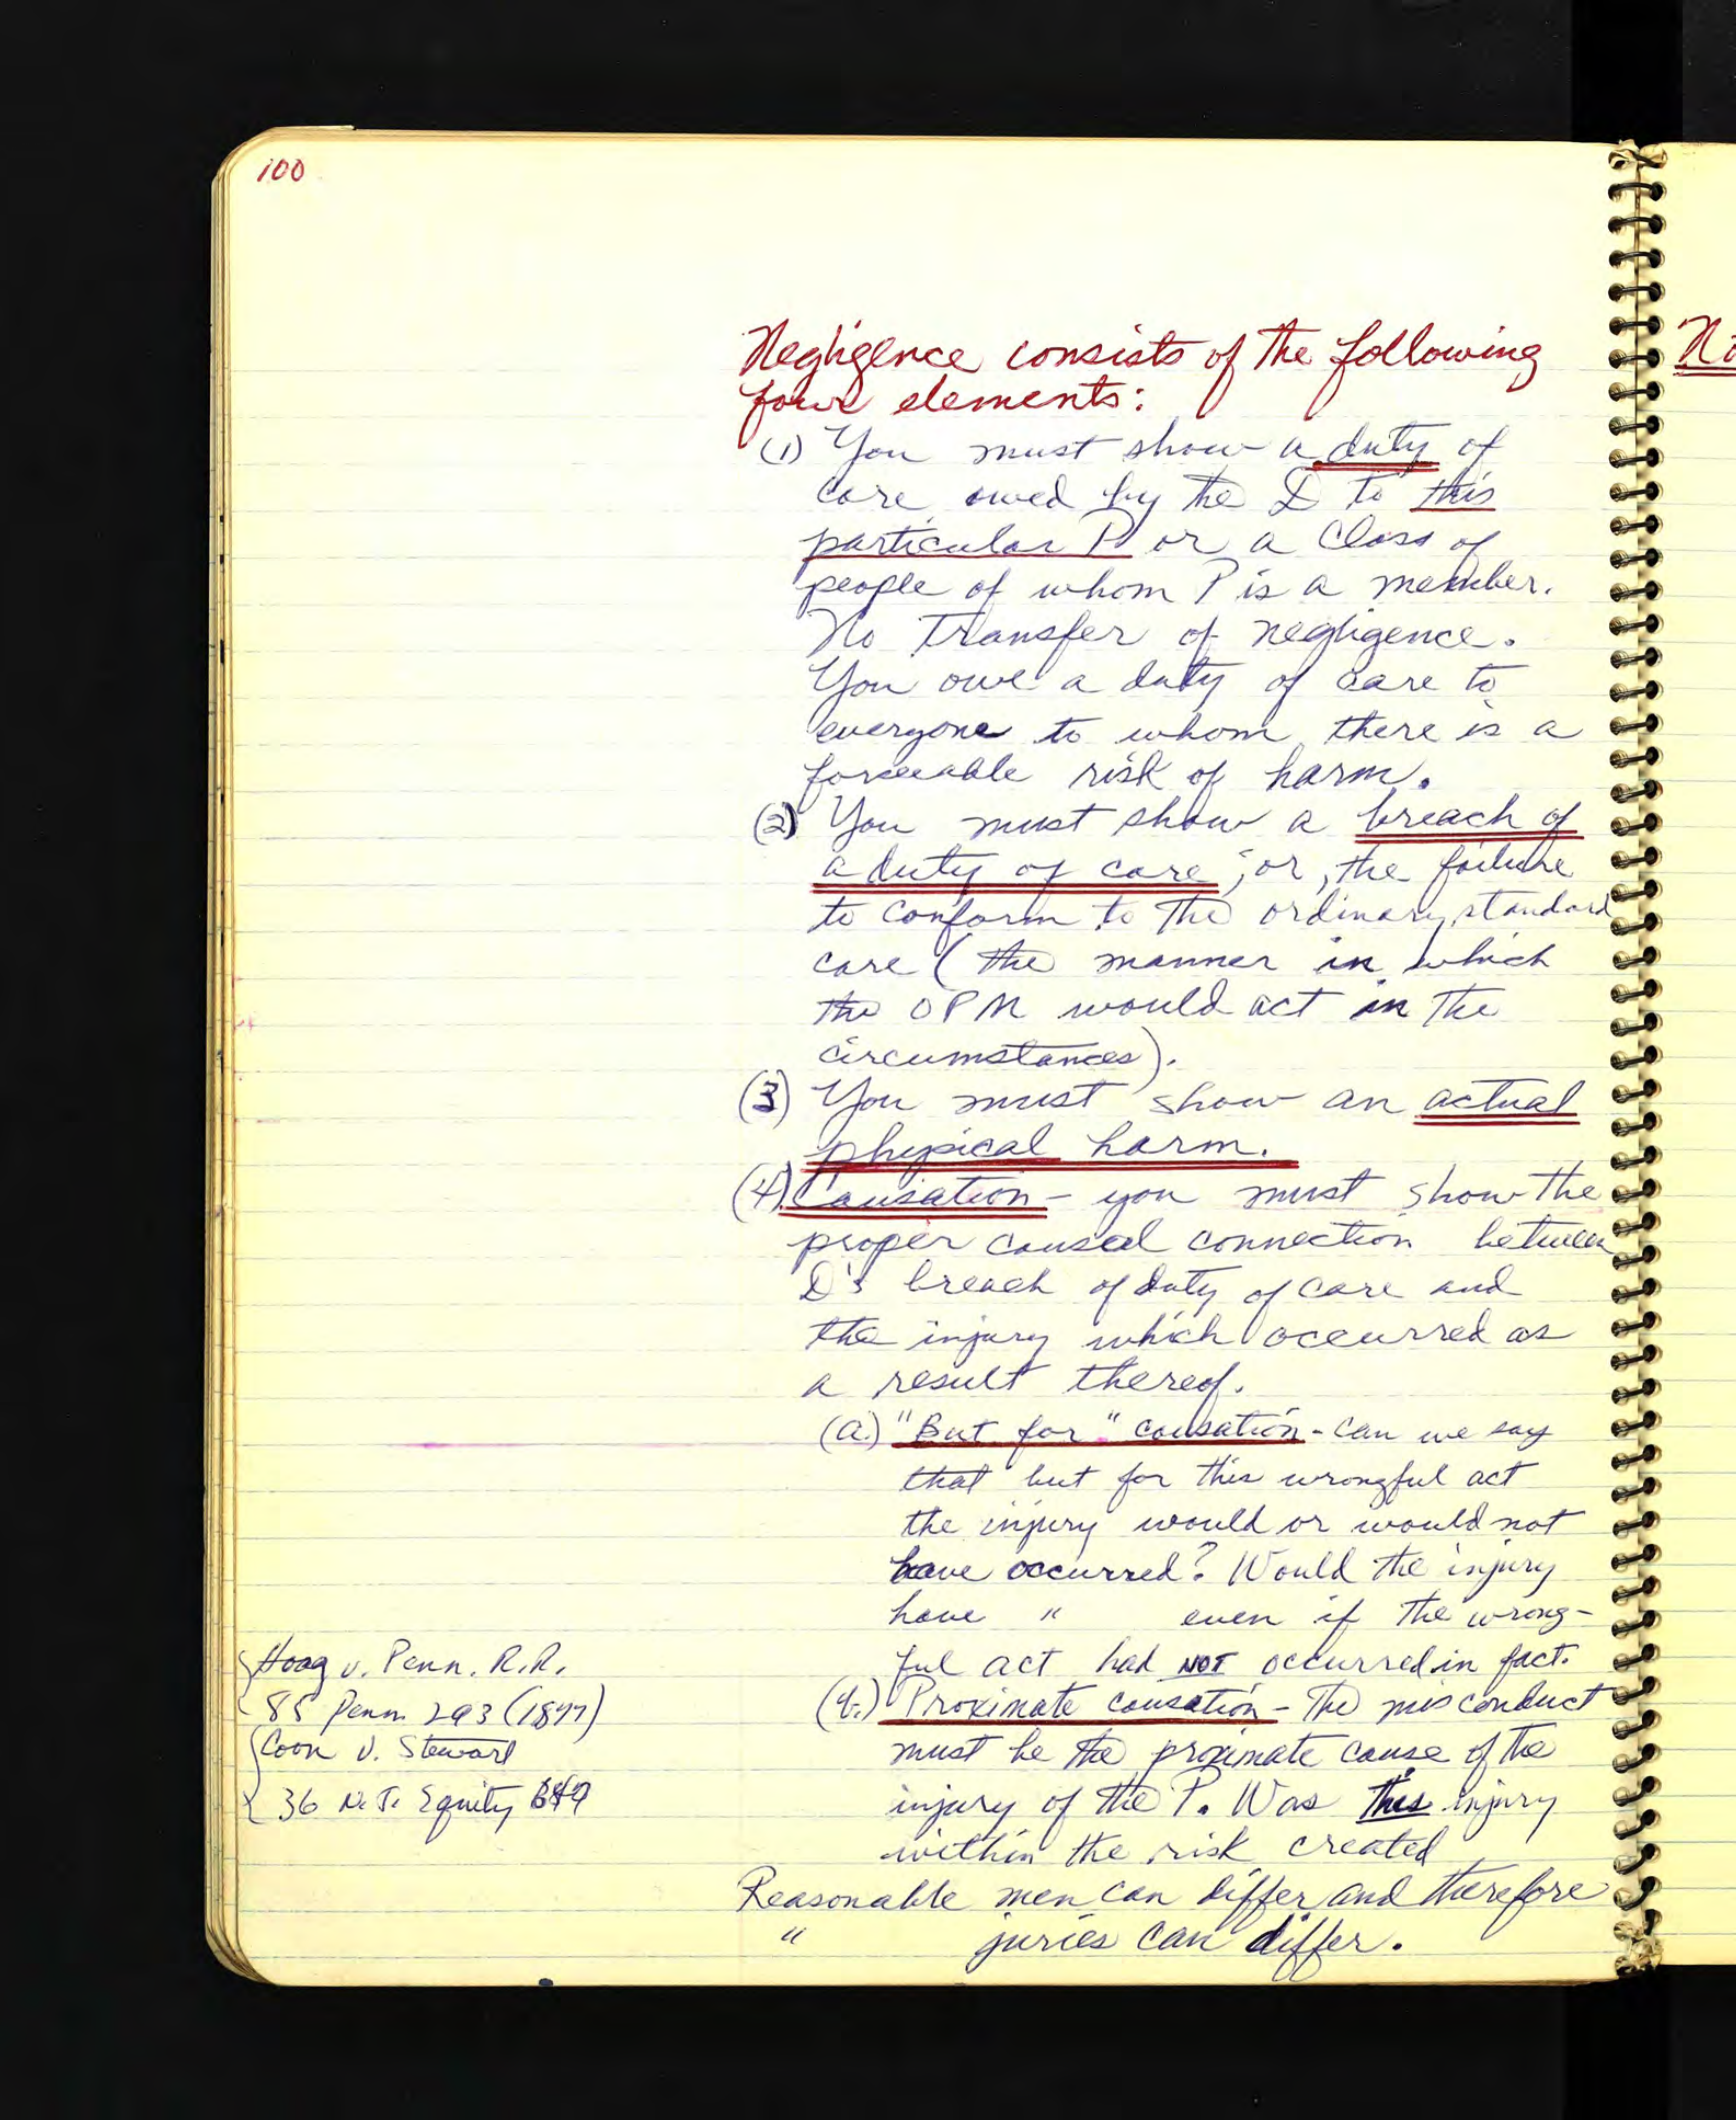 100
Negligence consists of the following
four elements:
(1) You must show a duty of
care owed by the D to this
particular P or a class of
people of whom P is a member.
No transfer of negligence.
You owe a duty of care to
everyone to whom there is a
forseeable risk of harm.
(2) You must show a breach of
a duty of care; or, the failure
to conform to the ordinary standard
care (the manner in which
the OPM would act in the
circumstances).
(3) You must show an actual
physical harm.
(4) Causation - you must show the
proper causal connection between
D's breach of duty of care and
the injury which occurred as
a result thereof.
(a.) "But for" causation - can we say
that but for this wrongful act
the injury would or would not
have occurred? Would the injury
have " even if the wrong-
ful act had NOT occurred in fact.
(b.) Proximate causation - The misconduct
must be the proximate cause of the
injury of the P. Was this injury
within the risk created
Reasonable men can differ and therefore
" juries can differ.
Hoag v. Penn. R.R.
85 Penn. 293 (1877)
Coon v. Stewart
36 N.J. Equity